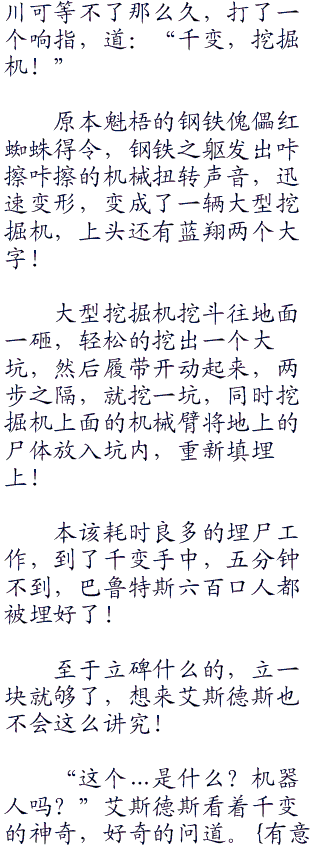 川可等不了那么久，打了一
个响指，道：“千变，挖掘
机！”
原本魁梧的钢铁傀儡红
蜘蛛得令，钢铁之躯发出咔
擦咔擦的机械扭转声音，迅
速变形，变成了一辆大型挖
掘机，上头还有蓝翔两个大
字！
大型挖掘机挖斗往地面
一砸，轻松的挖出一个大
坑，然后履带开动起来，两
步之隔，就挖一坑，同时挖
掘机上面的机械臂将地上的
尸体放入坑内，重新填埋
上！
本该耗时良多的埋尸工
作，到了千变手中，五分钟
不到，巴鲁特斯六百口人都
被埋好了！
至于立碑什么的，立一
块就够了，想来艾斯德斯也
不会这么讲究！
“这个…是什么？机器
人吗？”艾斯德斯看着千变
的神奇，好奇的问道。{有意